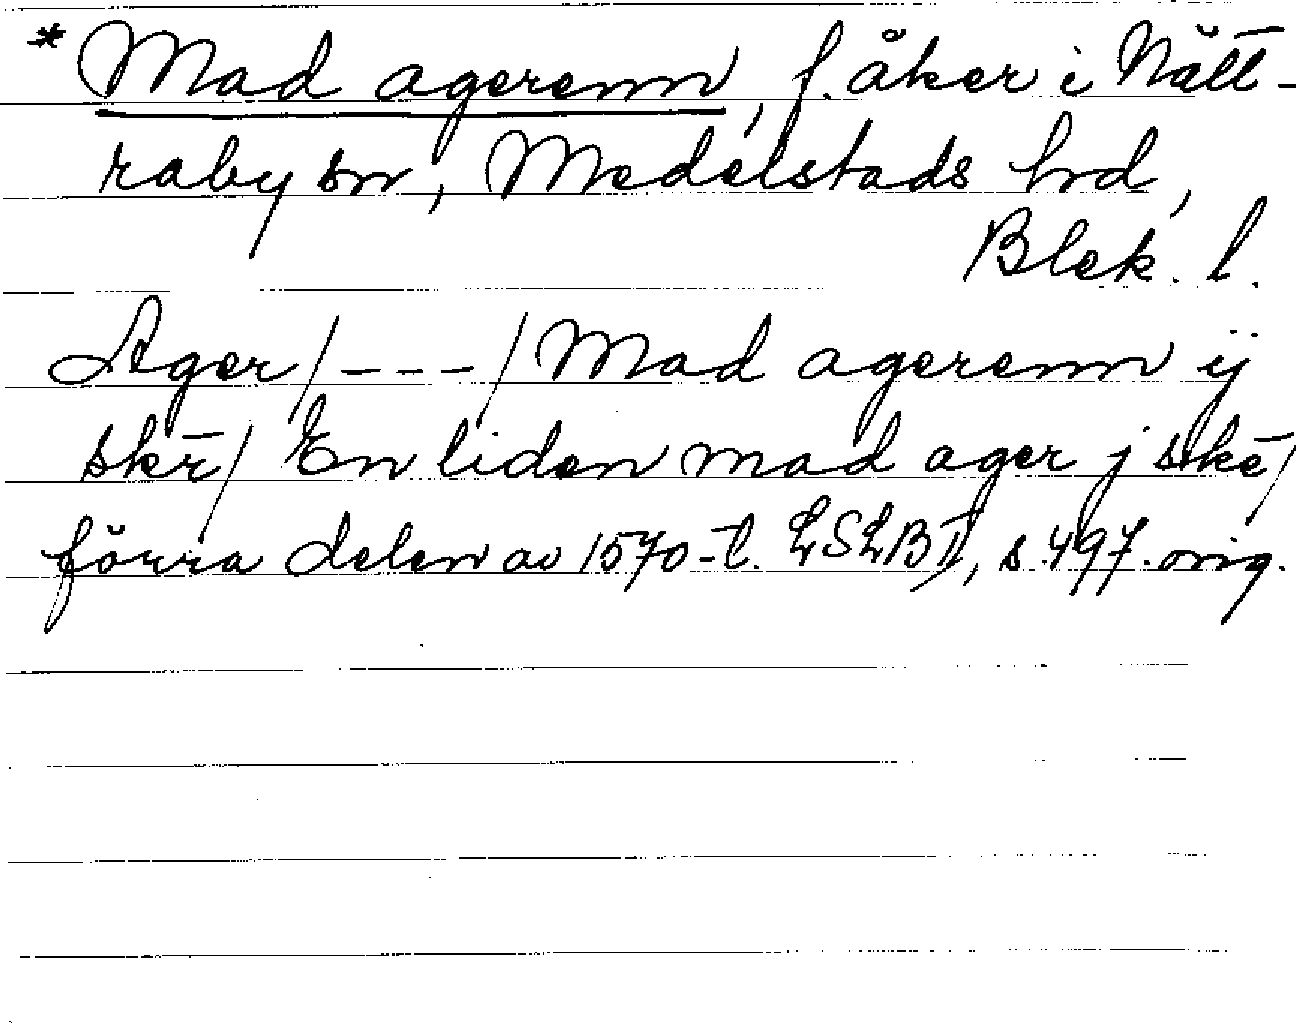 * Mad agerenn, f. åker i Nätt-
raby sn, Medelstads hd,
Blek. l.
Ager/---/Mad agerenn ij
skr̄/ En liden mad ager j skē/
förra delen av 1570-t. LSLB II, s. 497. orig.